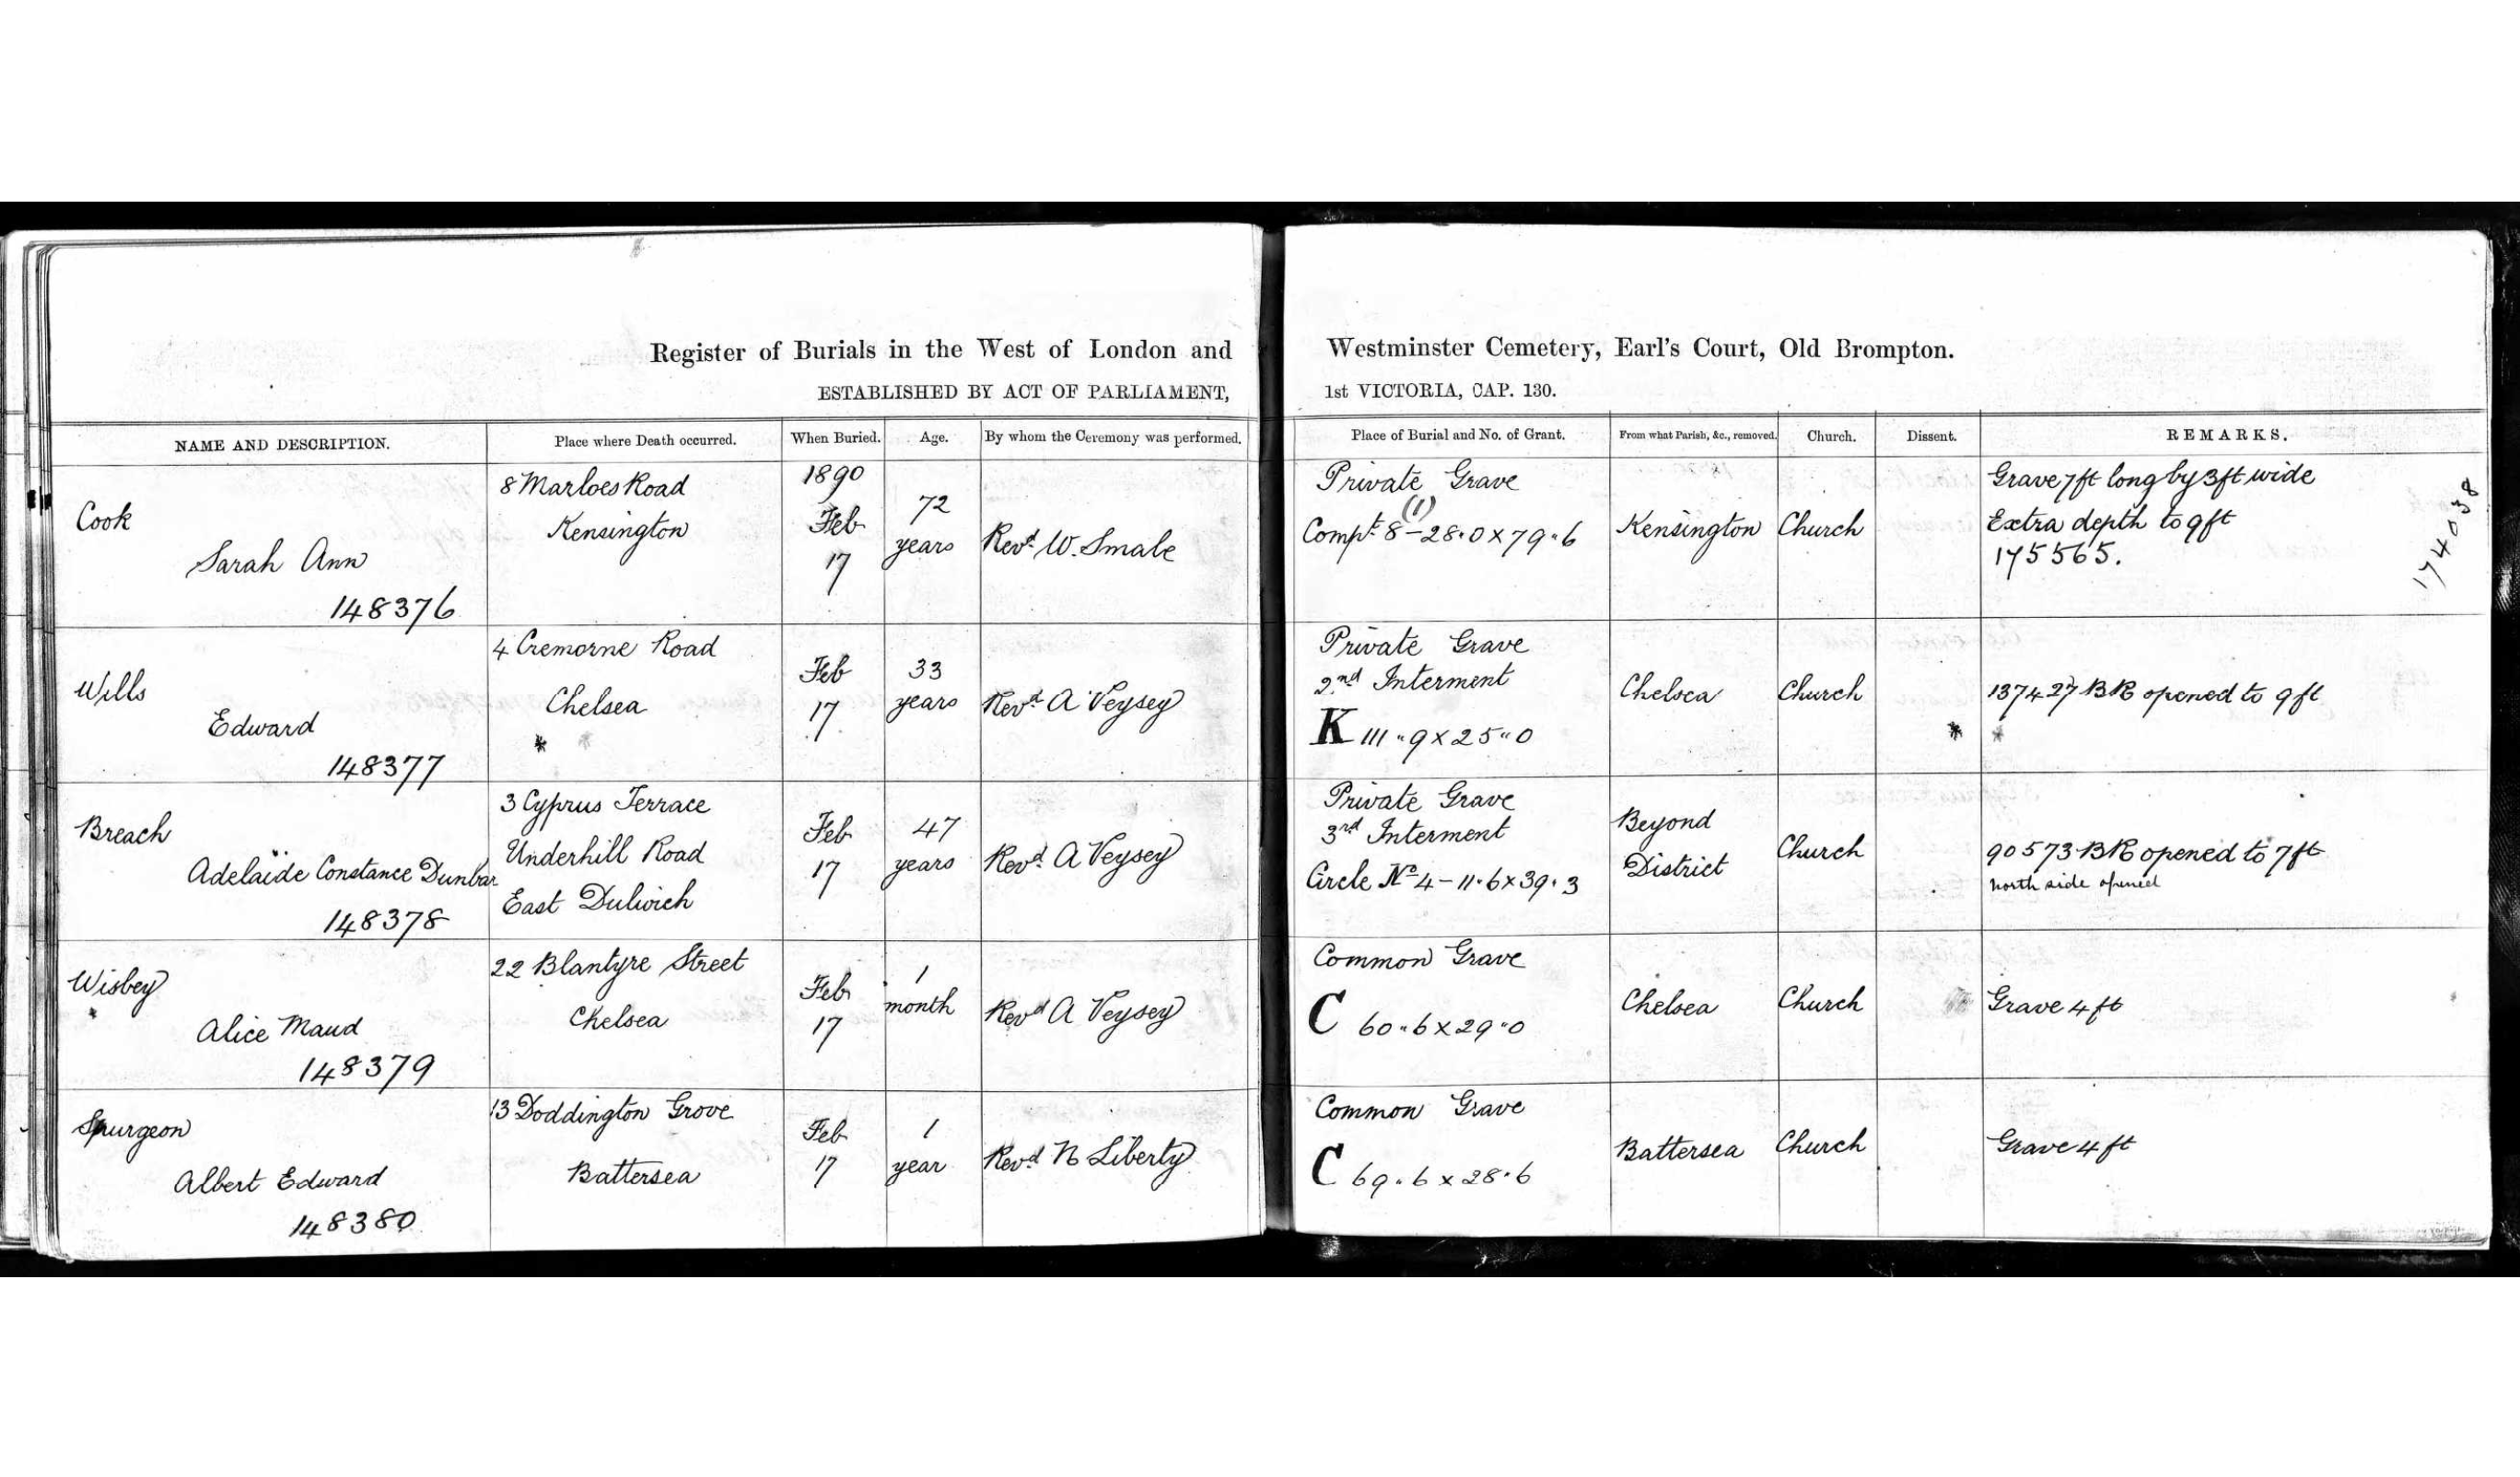 Register of Burials in the West of London and Westminster Cemetery, Earl's Court, Old Brompton.
ESTABLISHED BY ACT OF PARLIAMENT, 1st VICTORIA, CAP. 130.
NAME AND DESCRIPTION. Place where Death occurred. When Buried. Age. By whom the Ceremony was performed. Place of Burial and No. of Grant. From what Parish, &c., removed. Church. Dissent. REMARKS.
Cook
Sarah Ann
148376
8 Marloes Road
Kensington
1890
Feb
17
72
years
Revd W. Smale
Private Grave
(1)
Compt 8 – 28.0 x 79.6
Kensington
Church
Grave 7ft long by 3ft wide
Extra depth to 9ft
175565.
174038
Wills
Edward
148377
4 Cremorne Road
Chelsea
Feb
17
33
years
Revd A Veysey
Private Grave
2nd Interment
K 111"9 x 25"0
Chelsea
Church
137427 BR opened to 9ft
Breach
Adelaïde Constance Dunbar
148378
3 Cyprus Terrace
Underhill Road
East Dulwich
Feb
17
47
years
Revd A Veysey
Private Grave
3rd Interment
Circle No 4 – 11.6 x 39.3
Beyond
District
Church
90573 BR opened to 7ft
north side opened
Wisbey
Alice Maud
148379
22 Blantyre Street
Chelsea
Feb
17
1
month
Revd A Veysey
Common Grave
C 60"6 x 29"0
Chelsea
Church
Grave 4ft
Spurgeon
Albert Edward
148380
13 Doddington Grove
Battersea
Feb
17
1
year
Revd N Liberty
Common Grave
C 69"6 x 28.6
Battersea
Church
Grave 4ft